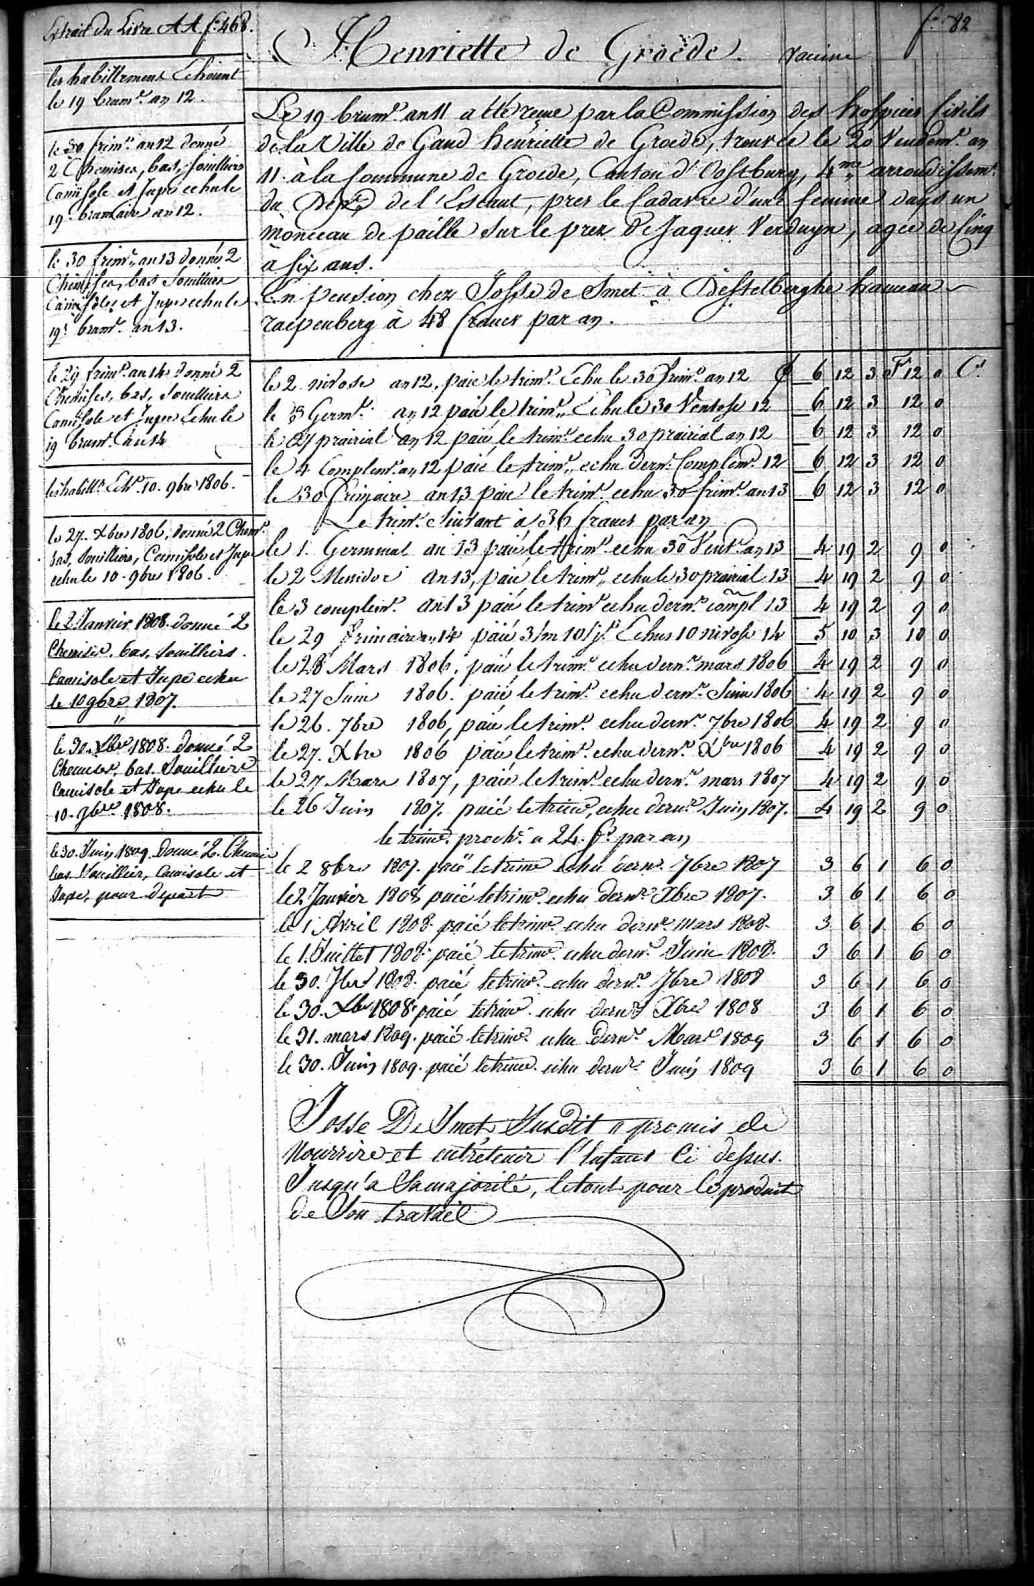 Extrait du Livre AA f. 468.
f. 82
Henriette de Groede. vaccine
les habillemens Echoient
le 19 brum.e an 12.
le 30 frim.e an 12 donné
2 Chemises, bas, souilliers
Camisole et Jupe echu le
19 brumaire an 12.
le 30 frim.e an 13 donné 2
Chemises, bas souilliers
Camisole et Jupe echu le
19 brum.e an 13.
le 29 frim.e an 14 donné 2
Chemises, bas, souilliers
Camisole et Jupe Echu le
19 brum.e an 14
les habill.s Ech.t 10. 9bre 1806.
le 27. Xbre 1806, donné 2 Chem.s
bas, souilliers, Camisole et Jupe
echu le 10. 9bre 1806.
le 2 Janvier 1808 donné 2
Chemises, bas, souilliers.
Camisole et Jupe echu
le 10 9bre 1807.
le 30. Xbre 1808. donné 2
Chemises, bas. souilliers
Camisole et Jupe echu le
10. 9bre 1808.
le 30. Juin 1809 Donné 2. Chemis
bas souillier, Camisole et
Jupe, pour depart
Le 19 brum.e an 11 a été reçue par la Commission des hospices Civils
de la Ville de Gand henriette de Groede, trouvée le 20 Vendem.e an
11. à la Commune de Groede, Canton d'Oostburg, 4.me arrondissem.t
du Dep.t de l'Escaut, pres le Cadavre d'une femme dans un
monceau de paille sur le prez de Jaques Verduyn, agée de Cinq
à six ans.
En pension chez Josse de Smet à Destelberghe hameau
raepenberg à 48 francs par an.
le 2 nivose an 12, paié le trim.e Echu le 30 frim.e an 12 £ 6 12 3 F 12 0 C.s
le 8 Germ.l an 12 paié le trim.e Echu le 30 Ventose 12 6 12 3 12 0
le 27 prairial an 12 paié le trim.e echu 30 prairial an 12 6 12 3 12 0
le 4 Complem.e an 12 paié le trim.e echu dern.r Complem.e 12 6 12 3 12 0
le 30 frimaire an 13 paié le trim.e echu 30 frim.e an 13 6 12 3 12 0
Le trim.e suivant à 36 francs par an
le 1. Germinal an 13 paié le trim.e echu 30 Vent.e an 13 4 19 2 9 0
le 2 Messidor an 13, paié le trim.e echu le 30 prairial 13 4 19 2 9 0
le 3 complem.e an 13 paié le trim.e echu dern.r compl 13 4 19 2 9 0
le 29 frimaire an 14 paié 3/m 10/j.s Echus 10 nivose 14 5 10 3 10 0
le 28 Mars 1806, paié le trim.e echu dern.r mars 1806 4 19 2 9 0
le 27 Juin 1806. paié le trim.e echu dern.r Juin 1806 4 19 2 9 0
le 26. 7bre 1806, paié le trim.e echu dern.r 7bre 1806 4 19 2 9 0
le 27. Xbre 1806 paié le trim.e echu dern.r Xbre 1806 4 19 2 9 0
le 27 Mars 1807, paié le trim.e echu dern.r mars 1807 4 19 2 9 0
le 26 Juin 1807. paié le trim.e echu dern.r Juin 1807. 4 19 2 9 0
le trim.e proch.n a 24. f.s par an
le 2 8bre 1807. paié le trim.e echu dern.r 7bre 1807 3 6 1 6 0
le 2 Janvier 1808 paié le trim.e echu dern.r Xbre 1807. 3 6 1 6 0
le 1 Avril 1808 paié le trim.e echu dern.r mars 1808. 3 6 1 6 0
le 1. Juillet 1808. paié le trim.e echu dern.r Juin 1808. 3 6 1 6 0
le 30. 7bre 1808. paié le trim.e echu dern.r 7bre 1808 3 6 1 6 0
le 30. Xbre 1808. paié le trim.e echu dern.r Xbre 1808 3 6 1 6 0
le 31. mars 1809. paié le trim.e echu dern.r Mars 1809 3 6 1 6 0
le 30. Juin 1809. paié le trim.e echu dern.r Juin 1809 3 6 1 6 0
Josse De Smet Susdit a promis de
nourrir et entrétenir l'Enfant Ci dessus
Jusqu'a Sa majorité, le tout pour le produit
de Son travail